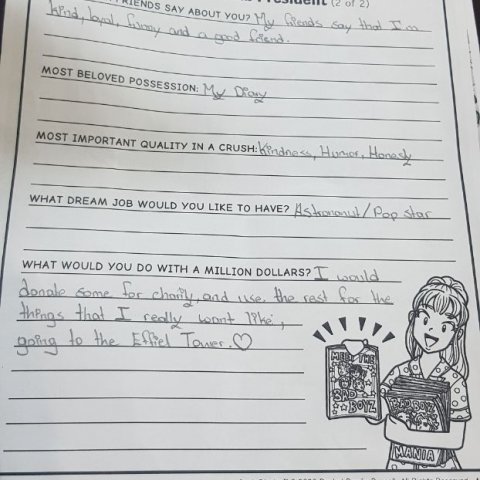 President (2 of 2)
FRIENDS SAY ABOUT YOU? My friends say that I'm
kind, loyal, funny and a good friend.
MOST BELOVED POSSESSION: My Diary
MOST IMPORTANT QUALITY IN A CRUSH: Kindness, Humor, Honesty
WHAT DREAM JOB WOULD YOU LIKE TO HAVE? Astronaut/Pop star
WHAT WOULD YOU DO WITH A MILLION DOLLARS? I would
donate some for charity, and use the rest for the
things that I really want like,
going to the Effiel Tower.♡
MEET THE
BAD
BOYZ
BAD BOYZ
MANIA